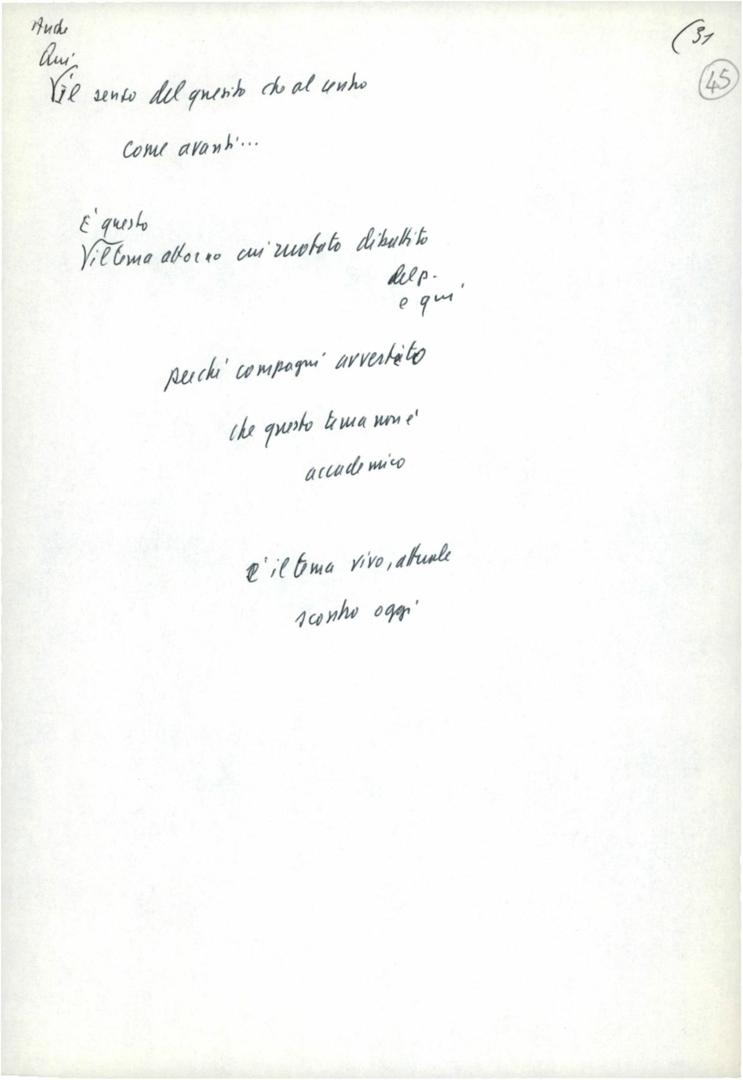 Anche
Qui
(31
45
il senso del quesito che al centro
come avanti...
E' questo
il tema attorno cui ruotato dibattito
del p.
e qui
perché compagni avvertito
che questo tema non è
accademico
è il tema vivo, attuale
scontro oggi